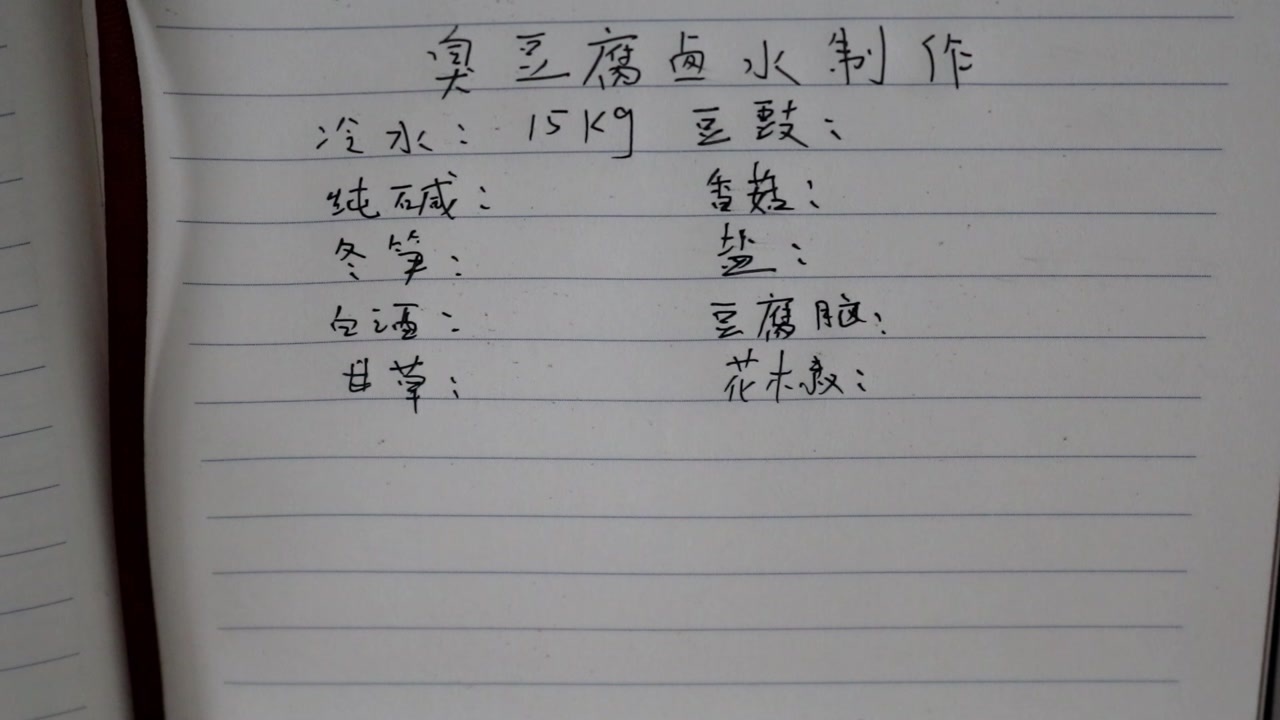 臭豆腐卤水制作
冷水：15Kg 豆豉：
纯碱： 香菇：
冬笋： 盐：
白酒： 豆腐脑：
甘草： 花木椒：